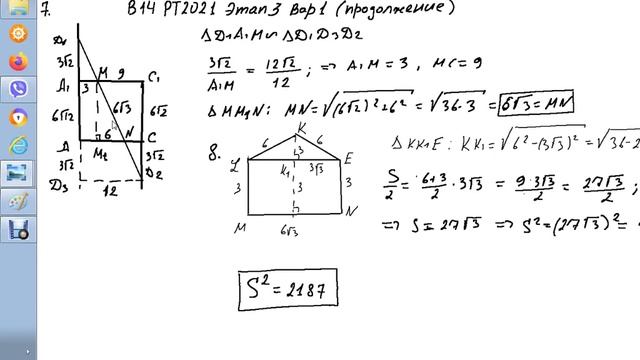 7. В14 РТ2021 Этап 3 Вар 1 (продолжение)
D₁
3√2
A₁ 3 M 9 C₁
6√2 6√3 6√2
A M₁ 6 N C
3√2 3√2
D₃ 12 D₂
Δ D₁A₁M ∾ Δ D₁D₃D₂
3√2/A₁M = 12√2/12 ; ⇒ A₁M = 3 , MC = 9
Δ MM₁N : MN = √((6√2)²+6²) = √(36·3) = 6√3 = MN
8.
K
6 3 6
L K₁ 3√3 E
3 3 3
M 6√3 N
Δ KK₁E : KK₁ = √(6²-(3√3)²) = √(36-2
S/2 = (6+3)/2 · 3√3 = 9·3√3/2 = 27√3/2 ;
⇒ S = 27√3 ⇒ S² = (27√3)² =
S² = 2187